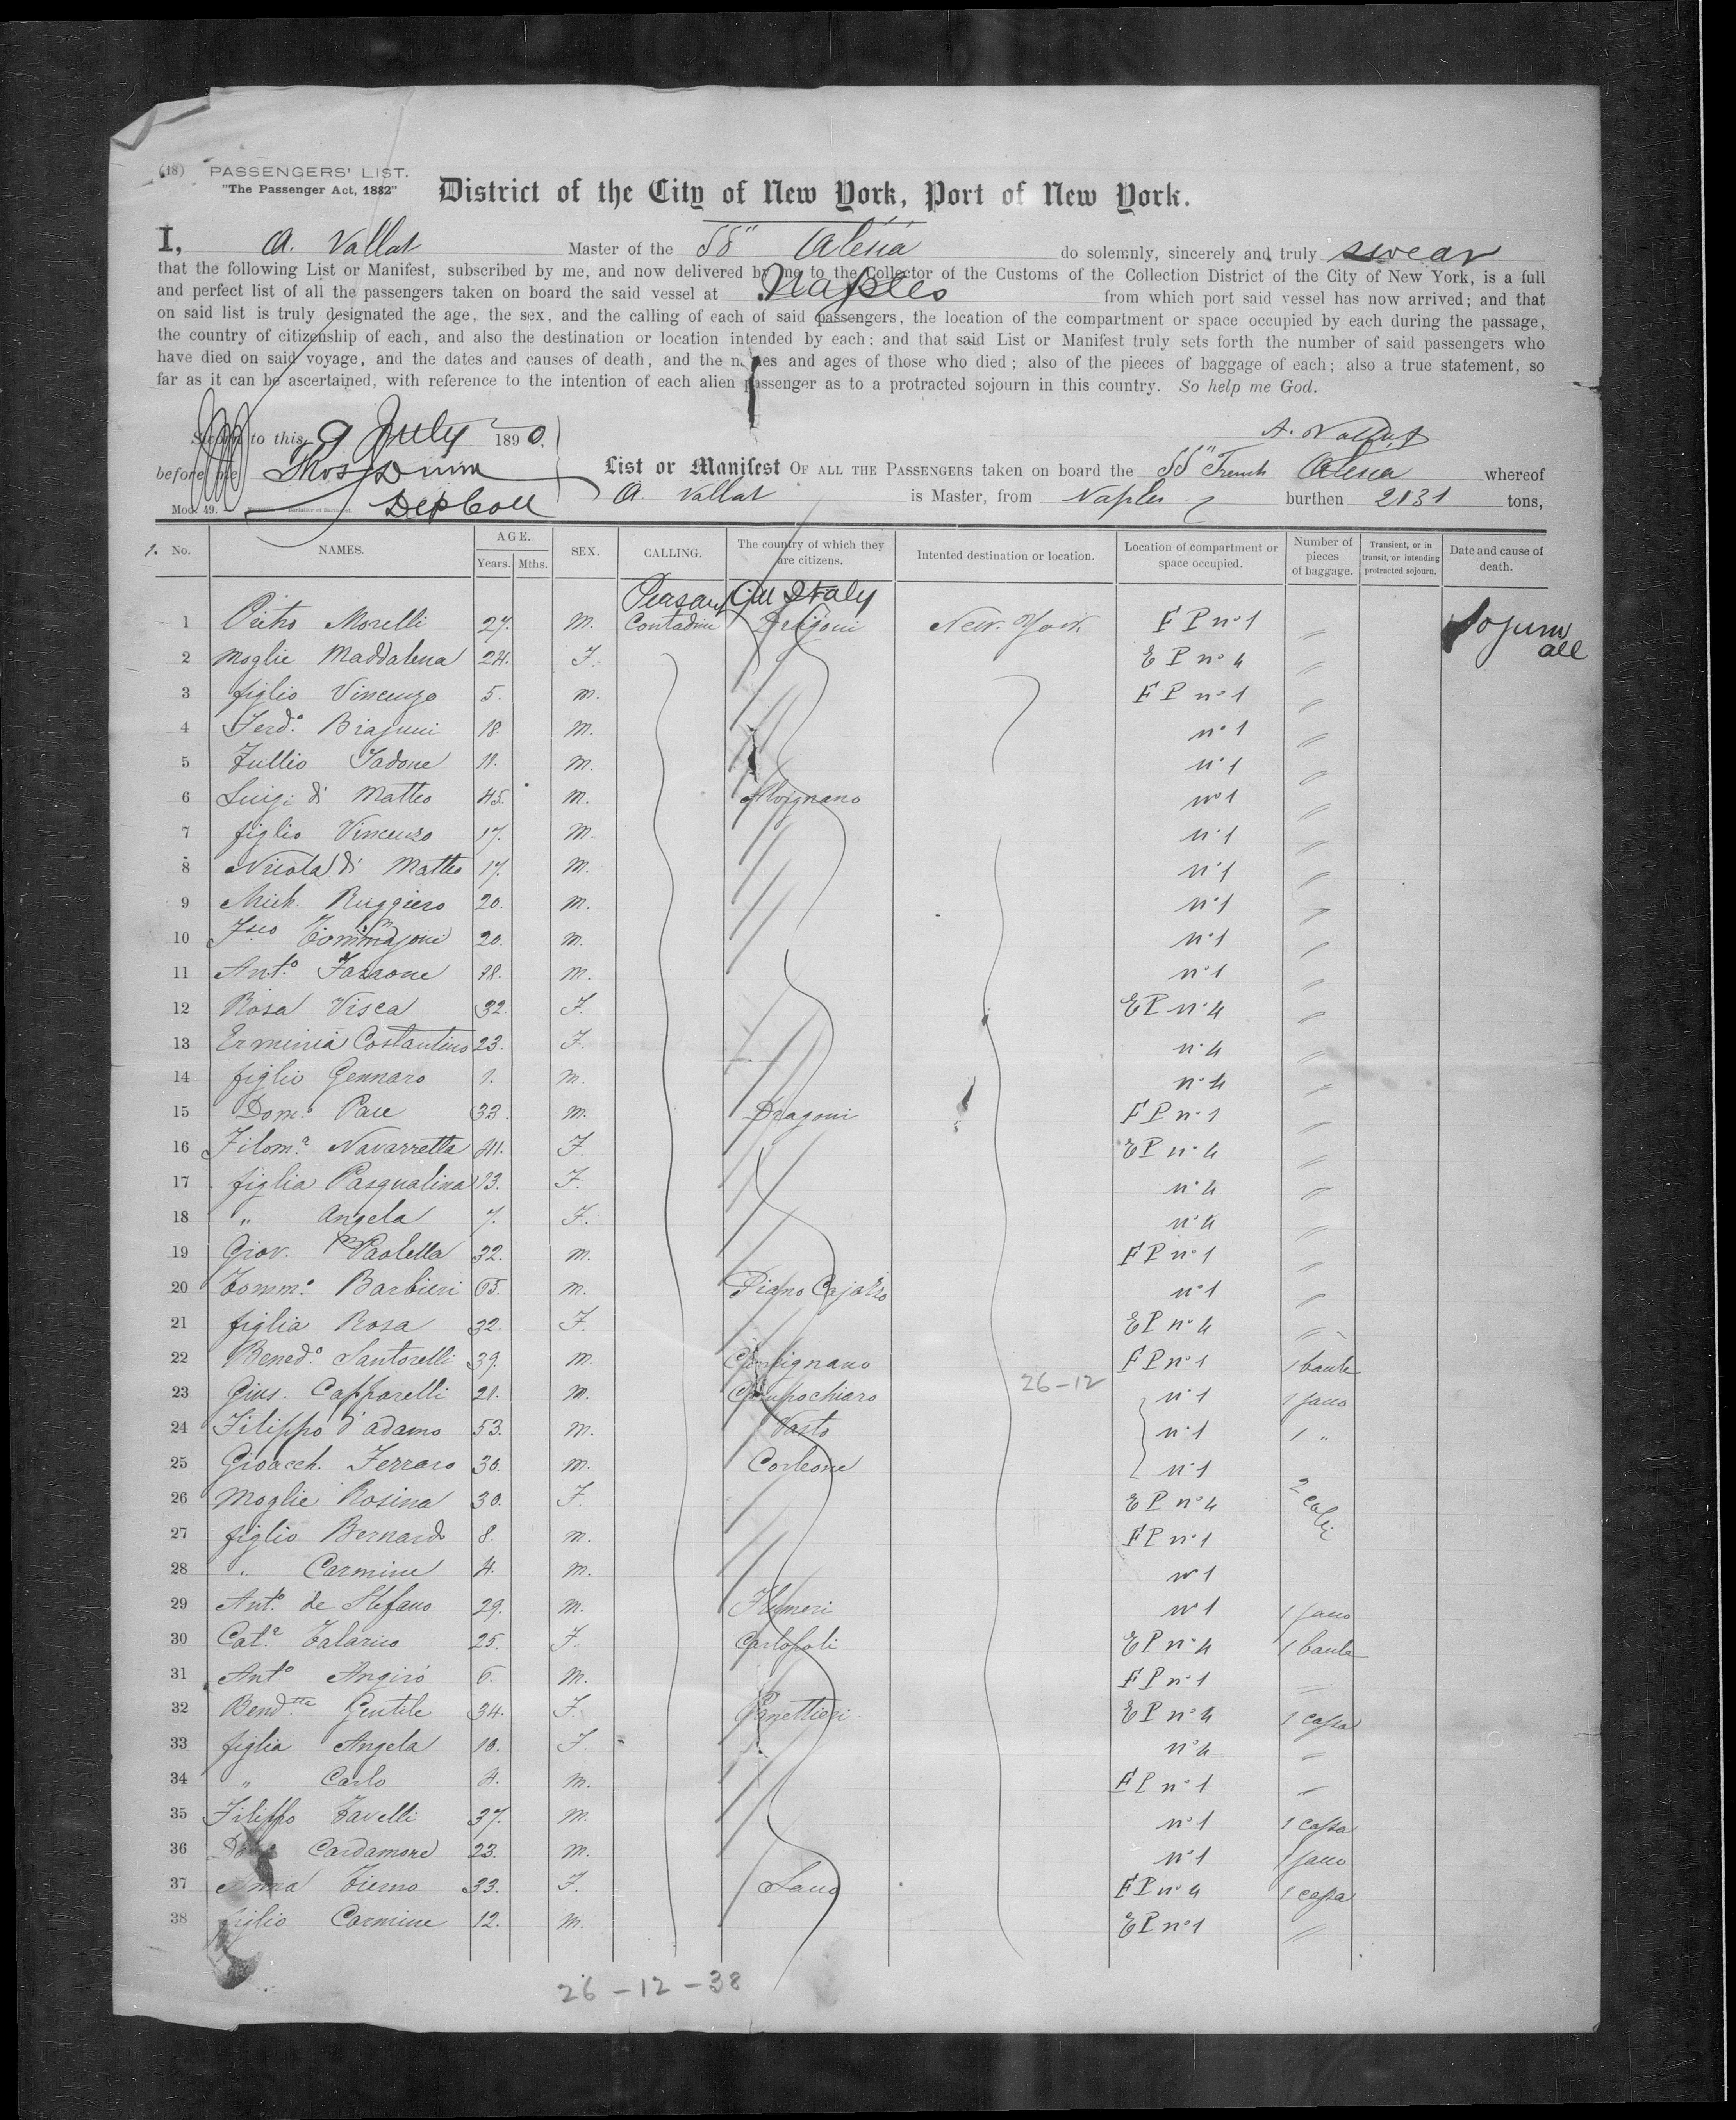 (18) PASSENGERS' LIST.
"The Passenger Act, 1882"
District of the City of New York, Port of New York.
I, A. Vallat Master of the SS" Alesia do solemnly, sincerely and truly swear
that the following List or Manifest, subscribed by me, and now delivered by me to the Collector of the Customs of the Collection District of the City of New York, is a full
and perfect list of all the passengers taken on board the said vessel at Naples from which port said vessel has now arrived; and that
on said list is truly designated the age, the sex, and the calling of each of said passengers, the location of the compartment or space occupied by each during the passage,
the country of citizenship of each, and also the destination or location intended by each: and that said List or Manifest truly sets forth the number of said passengers who
have died on said voyage, and the dates and causes of death, and the names and ages of those who died; also of the pieces of baggage of each; also a true statement, so
far as it can be ascertained, with reference to the intention of each alien passenger as to a protracted sojourn in this country. So help me God.
Sworn to this 9 July 1890.
A. Vallat
before me Thos Dunn
Dep Coll
List or Manifest OF ALL THE PASSENGERS taken on board the SS" French Alesia whereof
A. Vallat is Master, from Naples burthen 2131 tons,
Mod. 49.
1. No. NAMES. AGE. Years. Mths. SEX. CALLING. The country of which they are citizens. Intented destination or location. Location of compartment or space occupied. Number of pieces of baggage. Transient, or in transit, or intending protracted sojourn. Date and cause of death.
Peasant All Italy
1 Pietro Morelli 27. M. Contadini Dragoni New. York F P n° 1 " Sojurn all
2 Moglie Maddalena 24. F. E P n° 4 "
3 figlio Vincenzo 5. M. F P n° 1 "
4 Ferd.° 18 M. n° 1 "
5 Tullio Iadone 11. M. n° 1 "
6 Luigi di Matteo 45. M. Alvignano n° 1 "
7 figlio Vincenzo 17. M. n° 1 "
8 Nicola di Matteo 17. M. n° 1 "
9 Mich. Ruggiero 20. M. n° 1 "
10 F.sco 20. M. n° 1 "
11 Ant.° Fassone 28. M. n° 1 "
12 Rosa Visca 32. F. E P n° 4 "
13 Erminia Costantino 23. F. n° 4 "
14 figlio Gennaro 1. M. n° 4 "
15 Dom.° Pace 33. M. Dragoni F P n° 1 "
16 Filom.a Navarretta 41. F. E P n° 4 "
17 figlia Pasqualina 13. F. n° 4 "
18 " Angela 7. F. n° 4 "
19 Giov. Paolella 32. M. F P n° 1 "
20 Tomm.° Barbieri 65. M. Piano Cajazzo n° 1 "
21 figlia Rosa 32. F. E P n° 4 "
22 Bened.° Santorelli 39. M. F P n° 1 1 baule
23 Gius. Capparelli 21. M. Campochiaro 26-12 n° 1 1 sacco
24 Filippo d'adamo 53. M. Vasto n° 1 1 "
25 Gioacch. Ferraro 30. M. Corleone n° 1
26 Moglie Rosina 30. F. E P n° 4 2 colli
27 figlio Bernardo 8. M. F P n° 1
28 " Carmine 4. M. n° 1
29 Ant.° de Stefano 29. M. Flumeri n° 1 1 sacco
30 Cat.a Talarico 25. F. Carlopoli E P n° 4 1 baule
31 Ant.° Angirò 6. M. F P n° 1 "
32 Bend.tta Gentile 34. F. Panettieri E P n° 4 1 cassa
33 figlia Angela 10. F. n° 4 "
34 " Carlo 4. M. F P n° 1 "
35 Filippo Tavelli 37. M. n° 1 1 cassa
36 Cardamone 23. M. n° 1 1 sacco
37 Anna Tierno 33. F. F P n° 4 1 cassa
38 figlio Carmine 12. M. E P n° 1 "
26-12-38